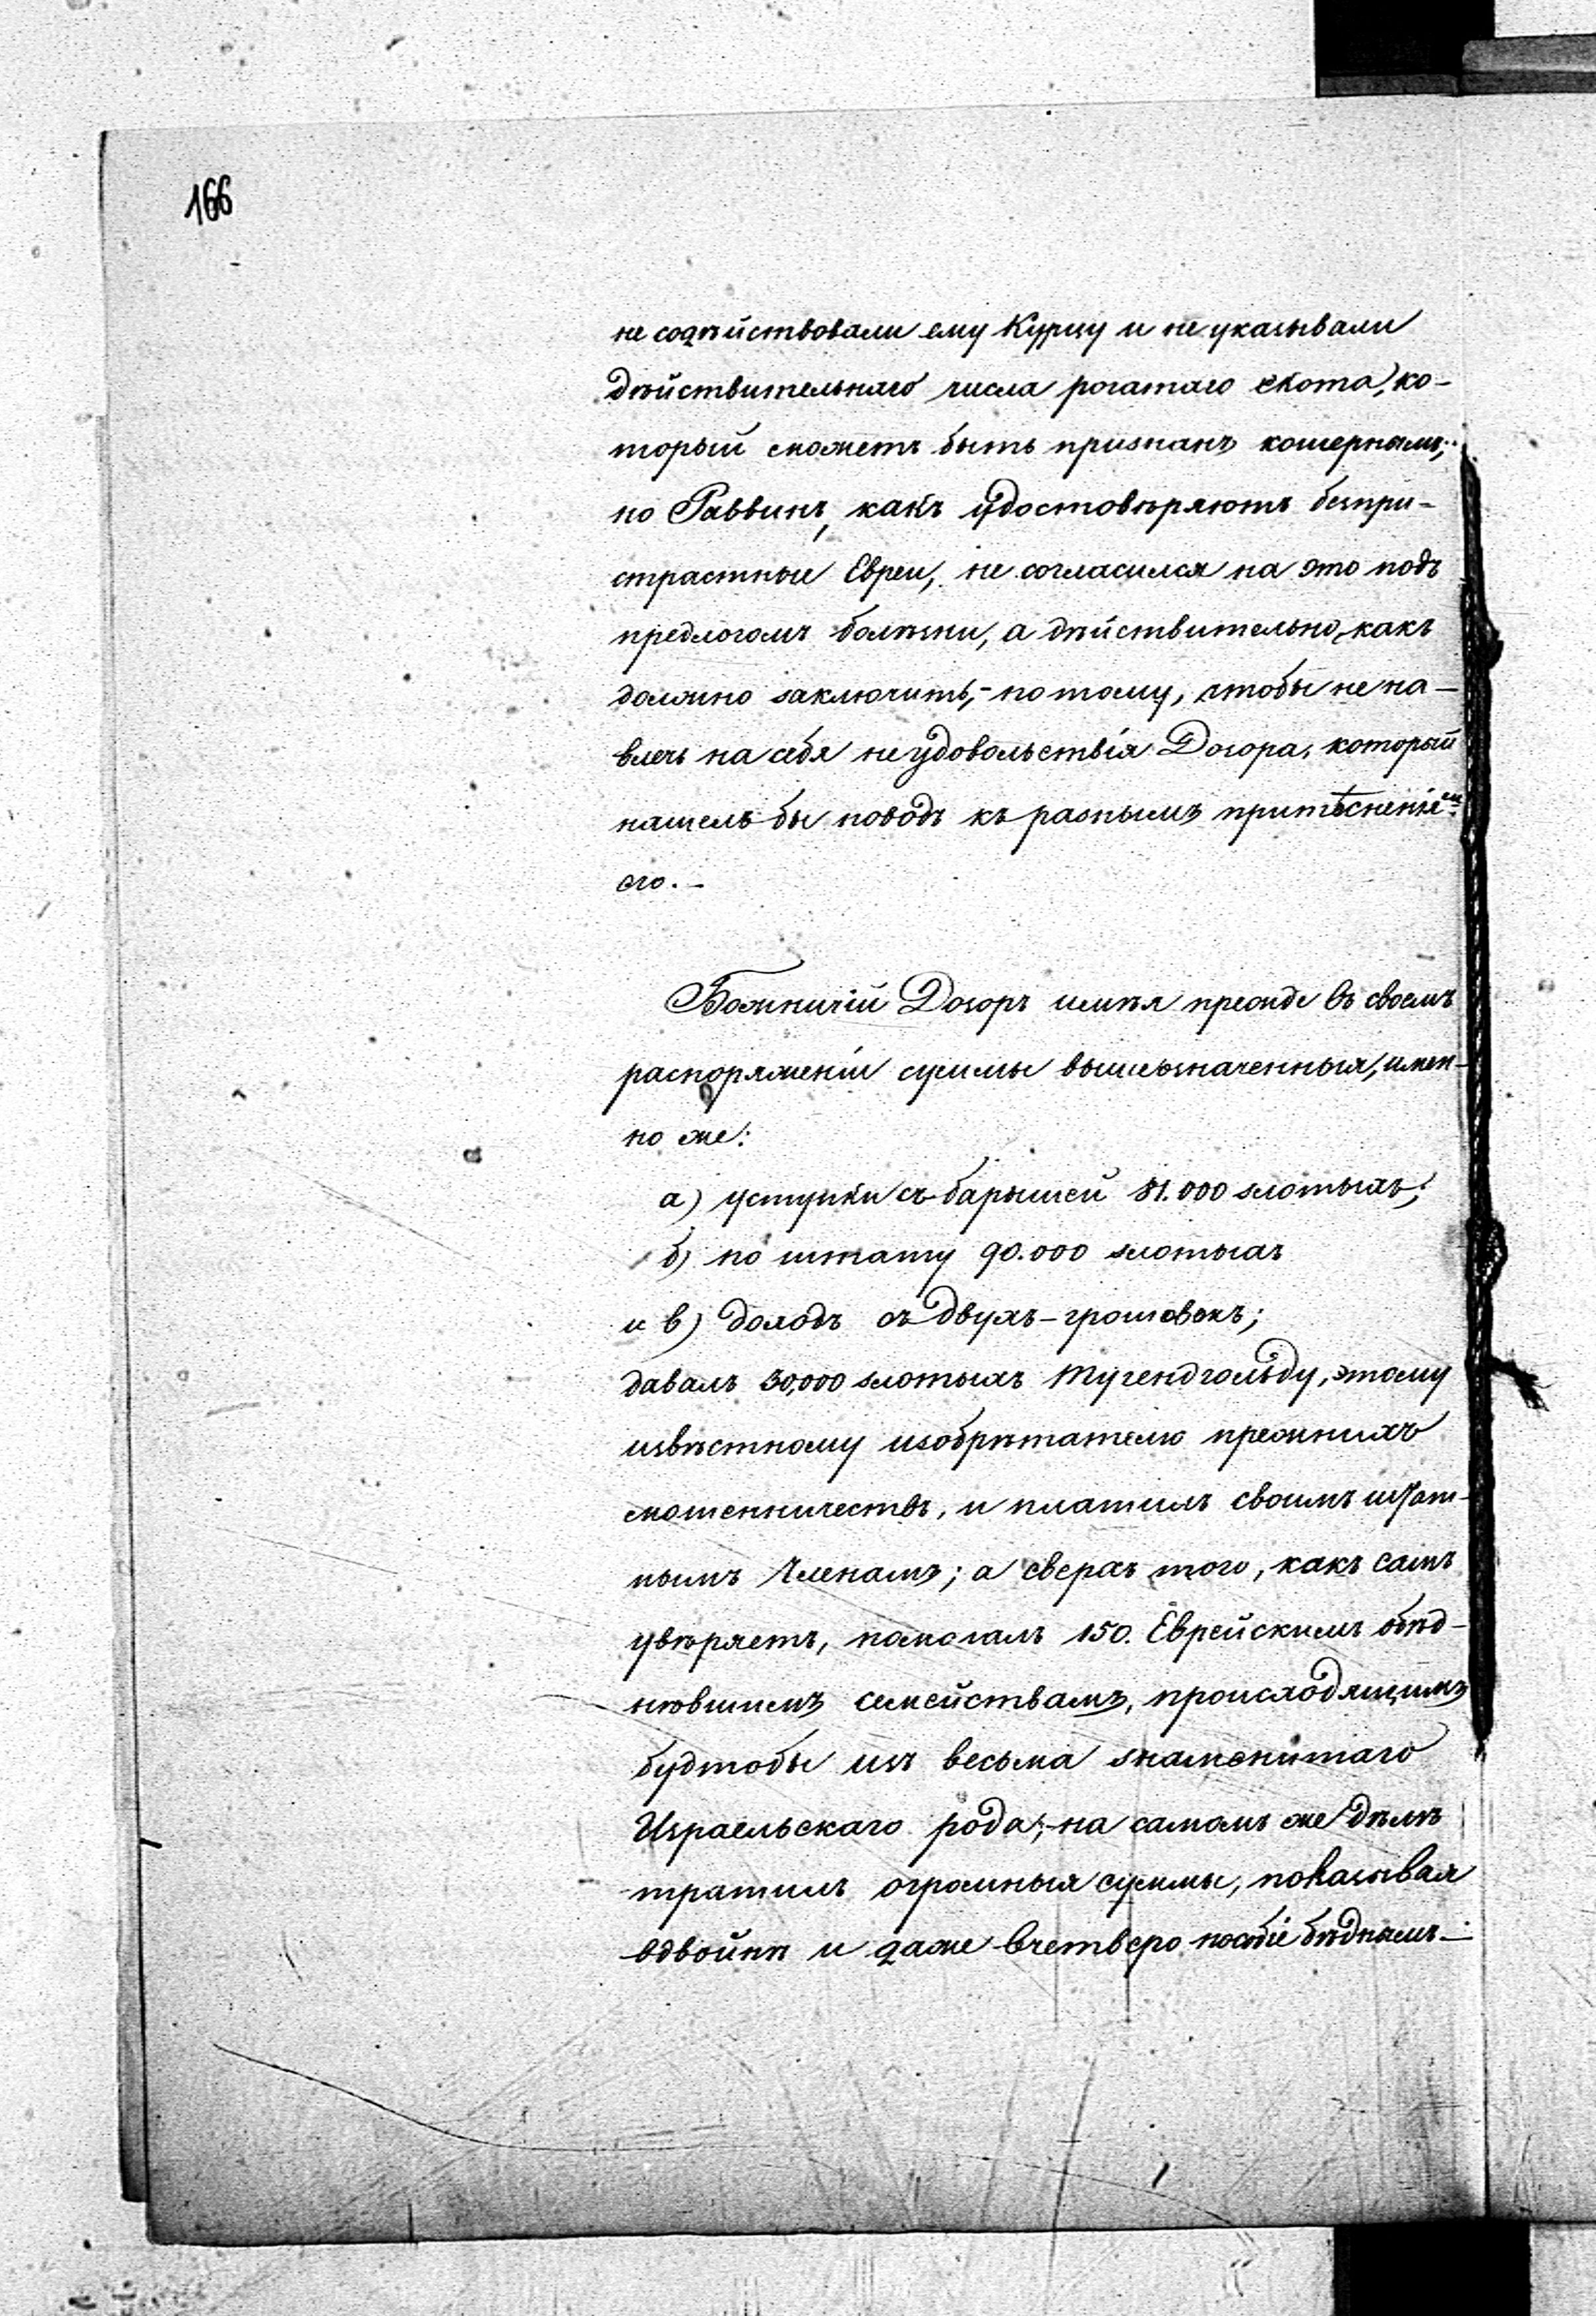 166
не содѣйствовали ему Курцу и не указывали
дѣйствительнаго числа рогатаго скота, ко-
торый можетъ быть признанъ кошернымъ;
но Раввинъ, какъ удостовѣряютъ безпри-
страстные Евреи, не согласился на это подъ
предлогомъ болѣзни, а дѣйствительно, какъ
должно заключить, - потому, чтобы не на-
влечь на себя неудовольствія Дозора, который
нашелъ бы поводъ къ разнымъ притѣсненіемъ
его. -
Божничій Дозоръ имѣя прежде въ своемъ
распоряженіи суммы вышеозначенныя, имен-
но же:
а) уступки съ барышей 81.000 злотыхъ;
б) по штату 90.000 злотыхъ
и в) доходъ съ двухъ-грошовокъ;
давалъ 30,000 злотыхъ Тугендгольду, этому
извѣстному изобрѣтателю прежнихъ
мошенничествъ, и платилъ своимъ штат-
нымъ Членамъ; а сверхъ того, какъ самъ
увѣряетъ, помогалъ 150. Еврейскимъ обѣд-
нѣвшимъ семействамъ, происходящимъ
будтобы изъ весьма знаменитаго
Израельскаго рода; - на самомъ же дѣлѣ
тратилъ огромныя суммы, показывая
вдвойнѣ и даже вчетверо пособіе бѣднымъ -